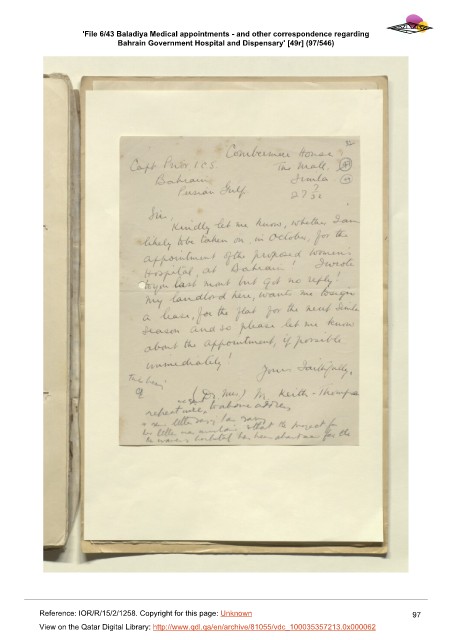 'File 6/43 Baladiya Medical appointments - and other correspondence regarding
Bahrain Government Hospital and Dispensary' [49r] (97/546)
Combermere House
Capt. Prior I.C.S. The Mall.
Bahrain Simla
Persian Gulf 27
Sir,
Kindly let me know, whether I am
likely to be taken on, in October, for the
appointment of the proposed women's
Hospital, at Bahrain! I wrote
to you last mont but got no reply!
My landlord here, wants me to sign
a lease, for the flat for the next Simla
Season and so please let me know
about the appointment, if possible
immediately!
Yours Faithfully,
(Dr Mrs) M. Keith-Thompson
letter
that the project for
the women's hospital has been for the
Reference: IOR/R/15/2/1258. Copyright for this page: Unknown
97
View on the Qatar Digital Library: http://www.qdl.qa/en/archive/81055/vdc_100035357213.0x000062